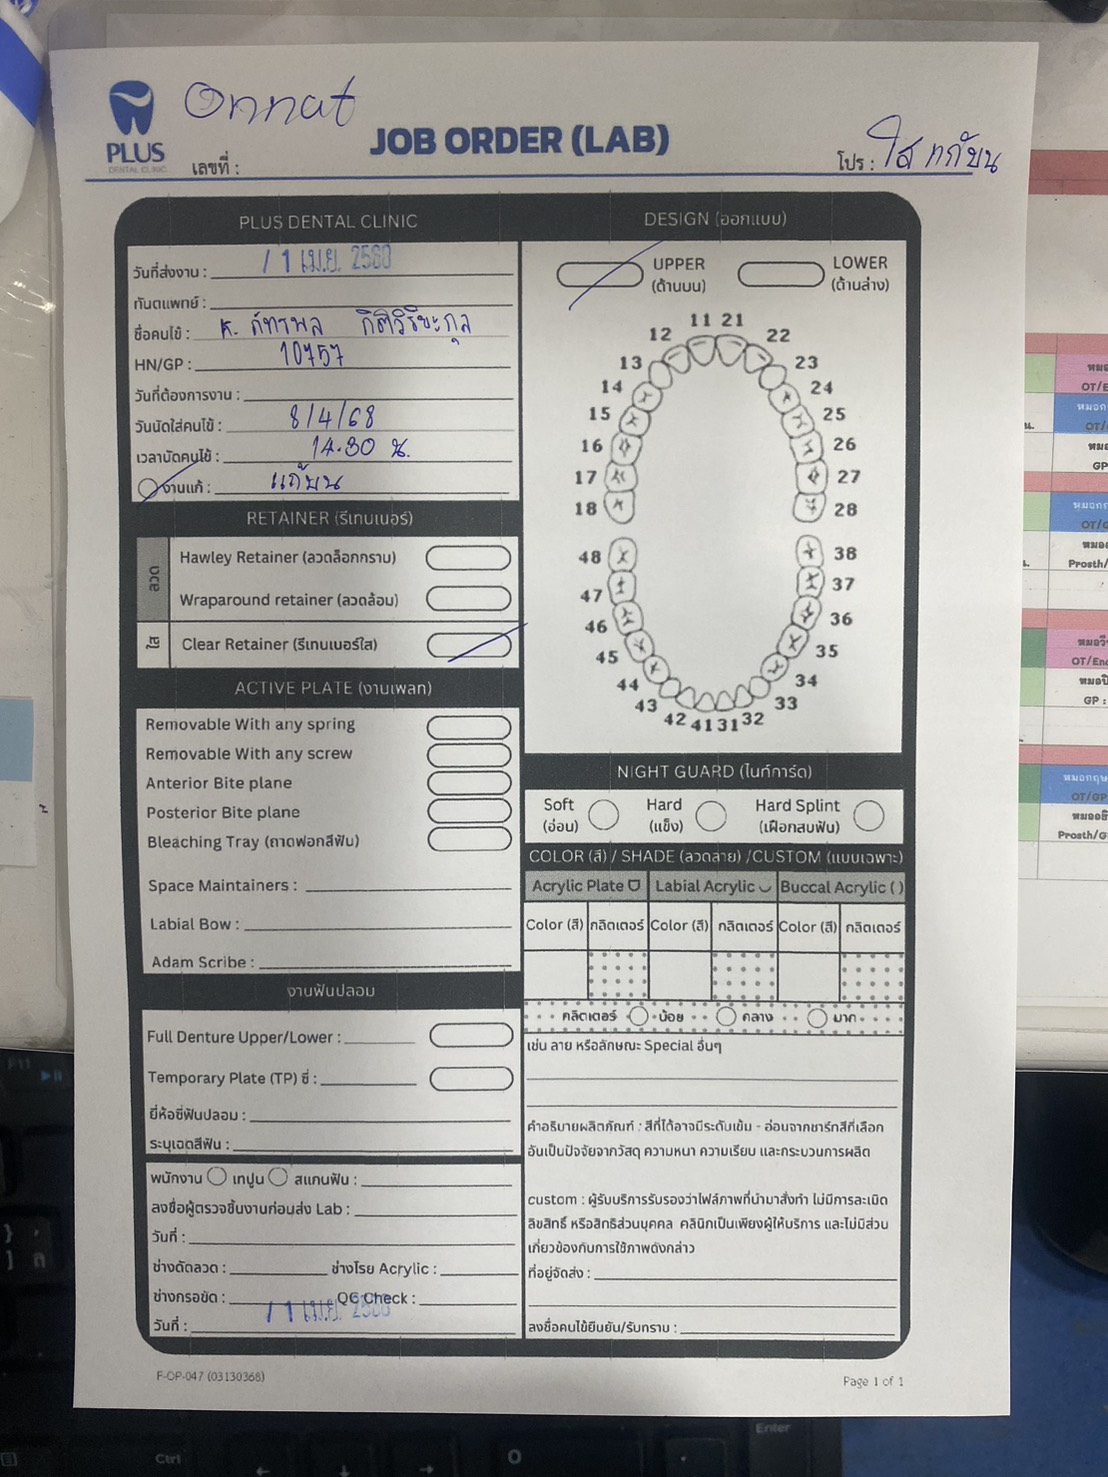 Onnat
PLUS
DENTAL CLINIC
JOB ORDER (LAB)
เลขที่ :
โปร : ใส แก้บน
PLUS DENTAL CLINIC
วันที่ส่งงาน : 1 เม.ย. 2568
ทันตแพทย์ :
ชื่อคนไข้ : K. ภัทรพล กิติวิริยะกุล
HN/GP : 10757
วันที่ต้องการงาน :
วันนัดใส่คนไข้ : 8/4/68
เวลานัดคนไข้ : 14.30 น.
งานแก้ : แก้บน
RETAINER (รีเทนเนอร์)
ลวด
Hawley Retainer (ลวดล็อกกราม)
Wraparound retainer (ลวดล้อม)
ใส
Clear Retainer (รีเทนเนอร์ใส)
ACTIVE PLATE (งานเพลท)
Removable With any spring
Removable With any screw
Anterior Bite plane
Posterior Bite plane
Bleaching Tray (ถาดฟอกสีฟัน)
Space Maintainers :
Labial Bow :
Adam Scribe :
งานฟันปลอม
Full Denture Upper/Lower :
Temporary Plate (TP) ซี่ :
ยี่ห้อซี่ฟันปลอม :
ระบุเฉดสีฟัน :
พนักงาน เทปูน สแกนฟัน :
ลงชื่อผู้ตรวจชิ้นงานก่อนส่ง Lab :
วันที่ :
ช่างดัดลวด : ช่างโรย Acrylic :
ช่างกรอขัด : QC Check :
วันที่ : 1 เม.ย. 2568
DESIGN (ออกแบบ)
UPPER
(ด้านบน)
LOWER
(ด้านล่าง)
11 21
12 22
13 23
14 24
15 25
16 26
17 27
18 28
48 38
47 37
46 36
45 35
44 34
43 33
42 41 31 32
NIGHT GUARD (ไนท์การ์ด)
Soft
(อ่อน)
Hard
(แข็ง)
Hard Splint
(เฝือกสบฟัน)
COLOR (สี) / SHADE (ลวดลาย) /CUSTOM (แบบเฉพาะ)
Acrylic Plate Labial Acrylic Buccal Acrylic ( )
Color (สี) กลิตเตอร์ Color (สี) กลิตเตอร์ Color (สี) กลิตเตอร์
กลิตเตอร์ น้อย กลาง มาก
เช่น ลาย หรือลักษณะ Special อื่นๆ
คำอธิบายผลิตภัณฑ์ : สีที่ได้อาจมีระดับเข้ม - อ่อนจากชาร์ทสีที่เลือก
อันเป็นปัจจัยจากวัสดุ ความหนา ความเรียบ และกระบวนการผลิต
custom : ผู้รับบริการรับรองว่าไฟล์ภาพที่นำมาสั่งทำ ไม่มีการละเมิด
ลิขสิทธิ์ หรือสิทธิส่วนบุคคล คลินิกเป็นเพียงผู้ให้บริการ และไม่มีส่วน
เกี่ยวข้องกับการใช้ภาพดังกล่าว
ที่อยู่จัดส่ง :
ลงชื่อคนไข้ยืนยัน/รับทราบ :
F-OP-047 (03130368)
Page 1 of 1
OT/GP
Prosth/G
Enter
Ctrl